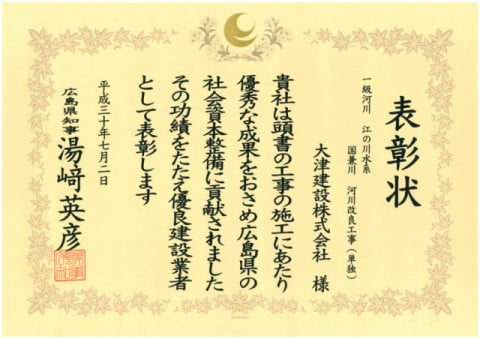 表彰状
一級河川 江の川水系
国兼川 河川改良工事(単独)
大津建設株式会社 様
貴社は頭書の工事の施工にあたり
優秀な成果をおさめ広島県の
社会資本整備に貢献されました
その功績をたたえ優良建設業者
として表彰します
平成三十年七月二日
広島県知事 湯﨑英彦